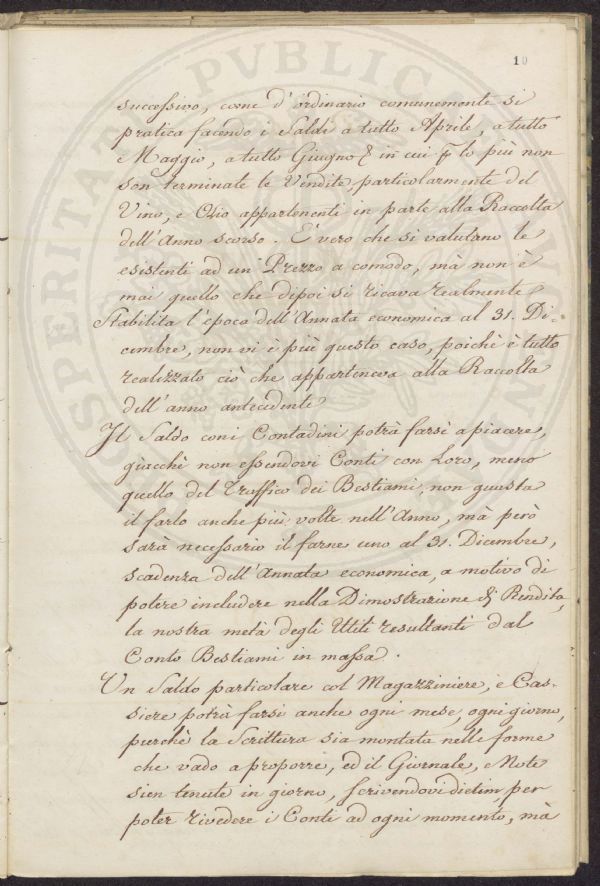 10
successivo, come d'ordinario comunemente si
pratica facendo i Saldi a tutto Aprile, a tutto
Maggio, a tutto Giugno & in cui lo più non
son terminate le Vendite, particolarmente del
Vino, e Olio appartenenti in parte alla Raccolta
dell'Anno scorso. E' vero che si valutano le
esistenti ad un Prezzo a comodo, mà non è
mai quello che dipoi si ricava realmente
Stabilita l'epoca dell'Annata economica al 31. Di=
cembre, non vi è più questo caso, poichè è tutto
realizzato ciò che apparteneva alla Raccolta
dell'anno antecedente
Il Saldo coni Contadini potrà farsi a piacere,
giacchè non essendovi Conti con Loro, meno
quello del Traffico dei Bestiami, non guasta
il farlo anche più volte nell'Anno, mà però
sarà necessario il farne uno al 31. Dicembre,
scadenza dell'Annata economica, a motivo di
potere includere nella Dimostrazione di Rendita,
la nostra metà degli Utili resultanti dal
Conto Bestiami in massa.
Un Saldo particolare col Magazziniere, e Cas-
siere potrà farsi anche ogni mese, ogni giorno,
purchè la Scrittura sia montata nelle forme
che vado a proporre, ed il Giornale, e Note
sien tenute in giorno, scrivendovi dietim, per
poter rivedere i Conti ad ogni momento, mà
PROSPERITATI PUBLICAE AUGENDAE